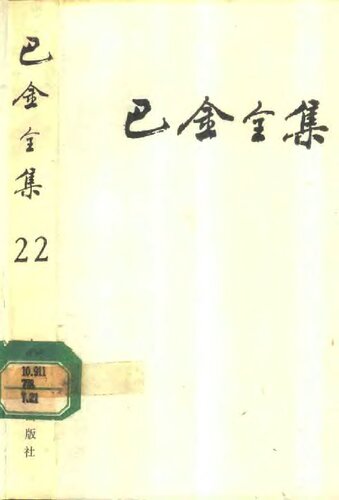 巴金全集
22
巴金全集
10.911
版社